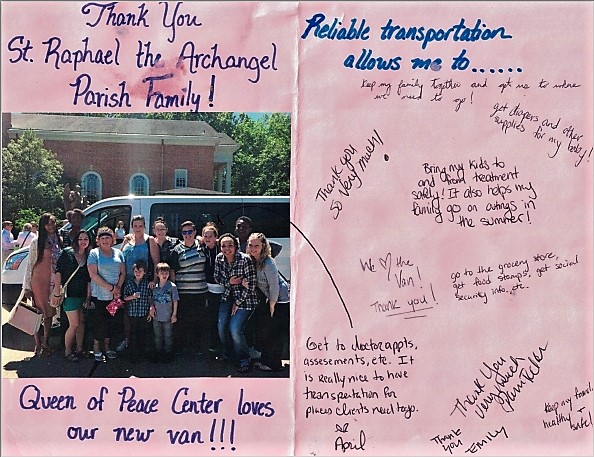 Thank You
St. Raphael the Archangel
Parish Family!
Queen of Peace Center loves
our new van!!!
Reliable transportation
allows me to......
keep my family together and get us to where
we need to go!
get diapers and other
supplies for my baby!
Thank you
so very much!
Bring my kids to
and from treatment
safely! It also helps my
family go on outings in
the summer!
We ♡ the
Van!
Thank you!
go to the grocery store,
get food stamps, get social
security info, etc.
Get to doctor appts,
assesements, etc. It
is really nice to have
transportation for
places clients need to go.
April
Thank You
Very Much
Thank
you
Emily
keep my family
healthy +
safe!